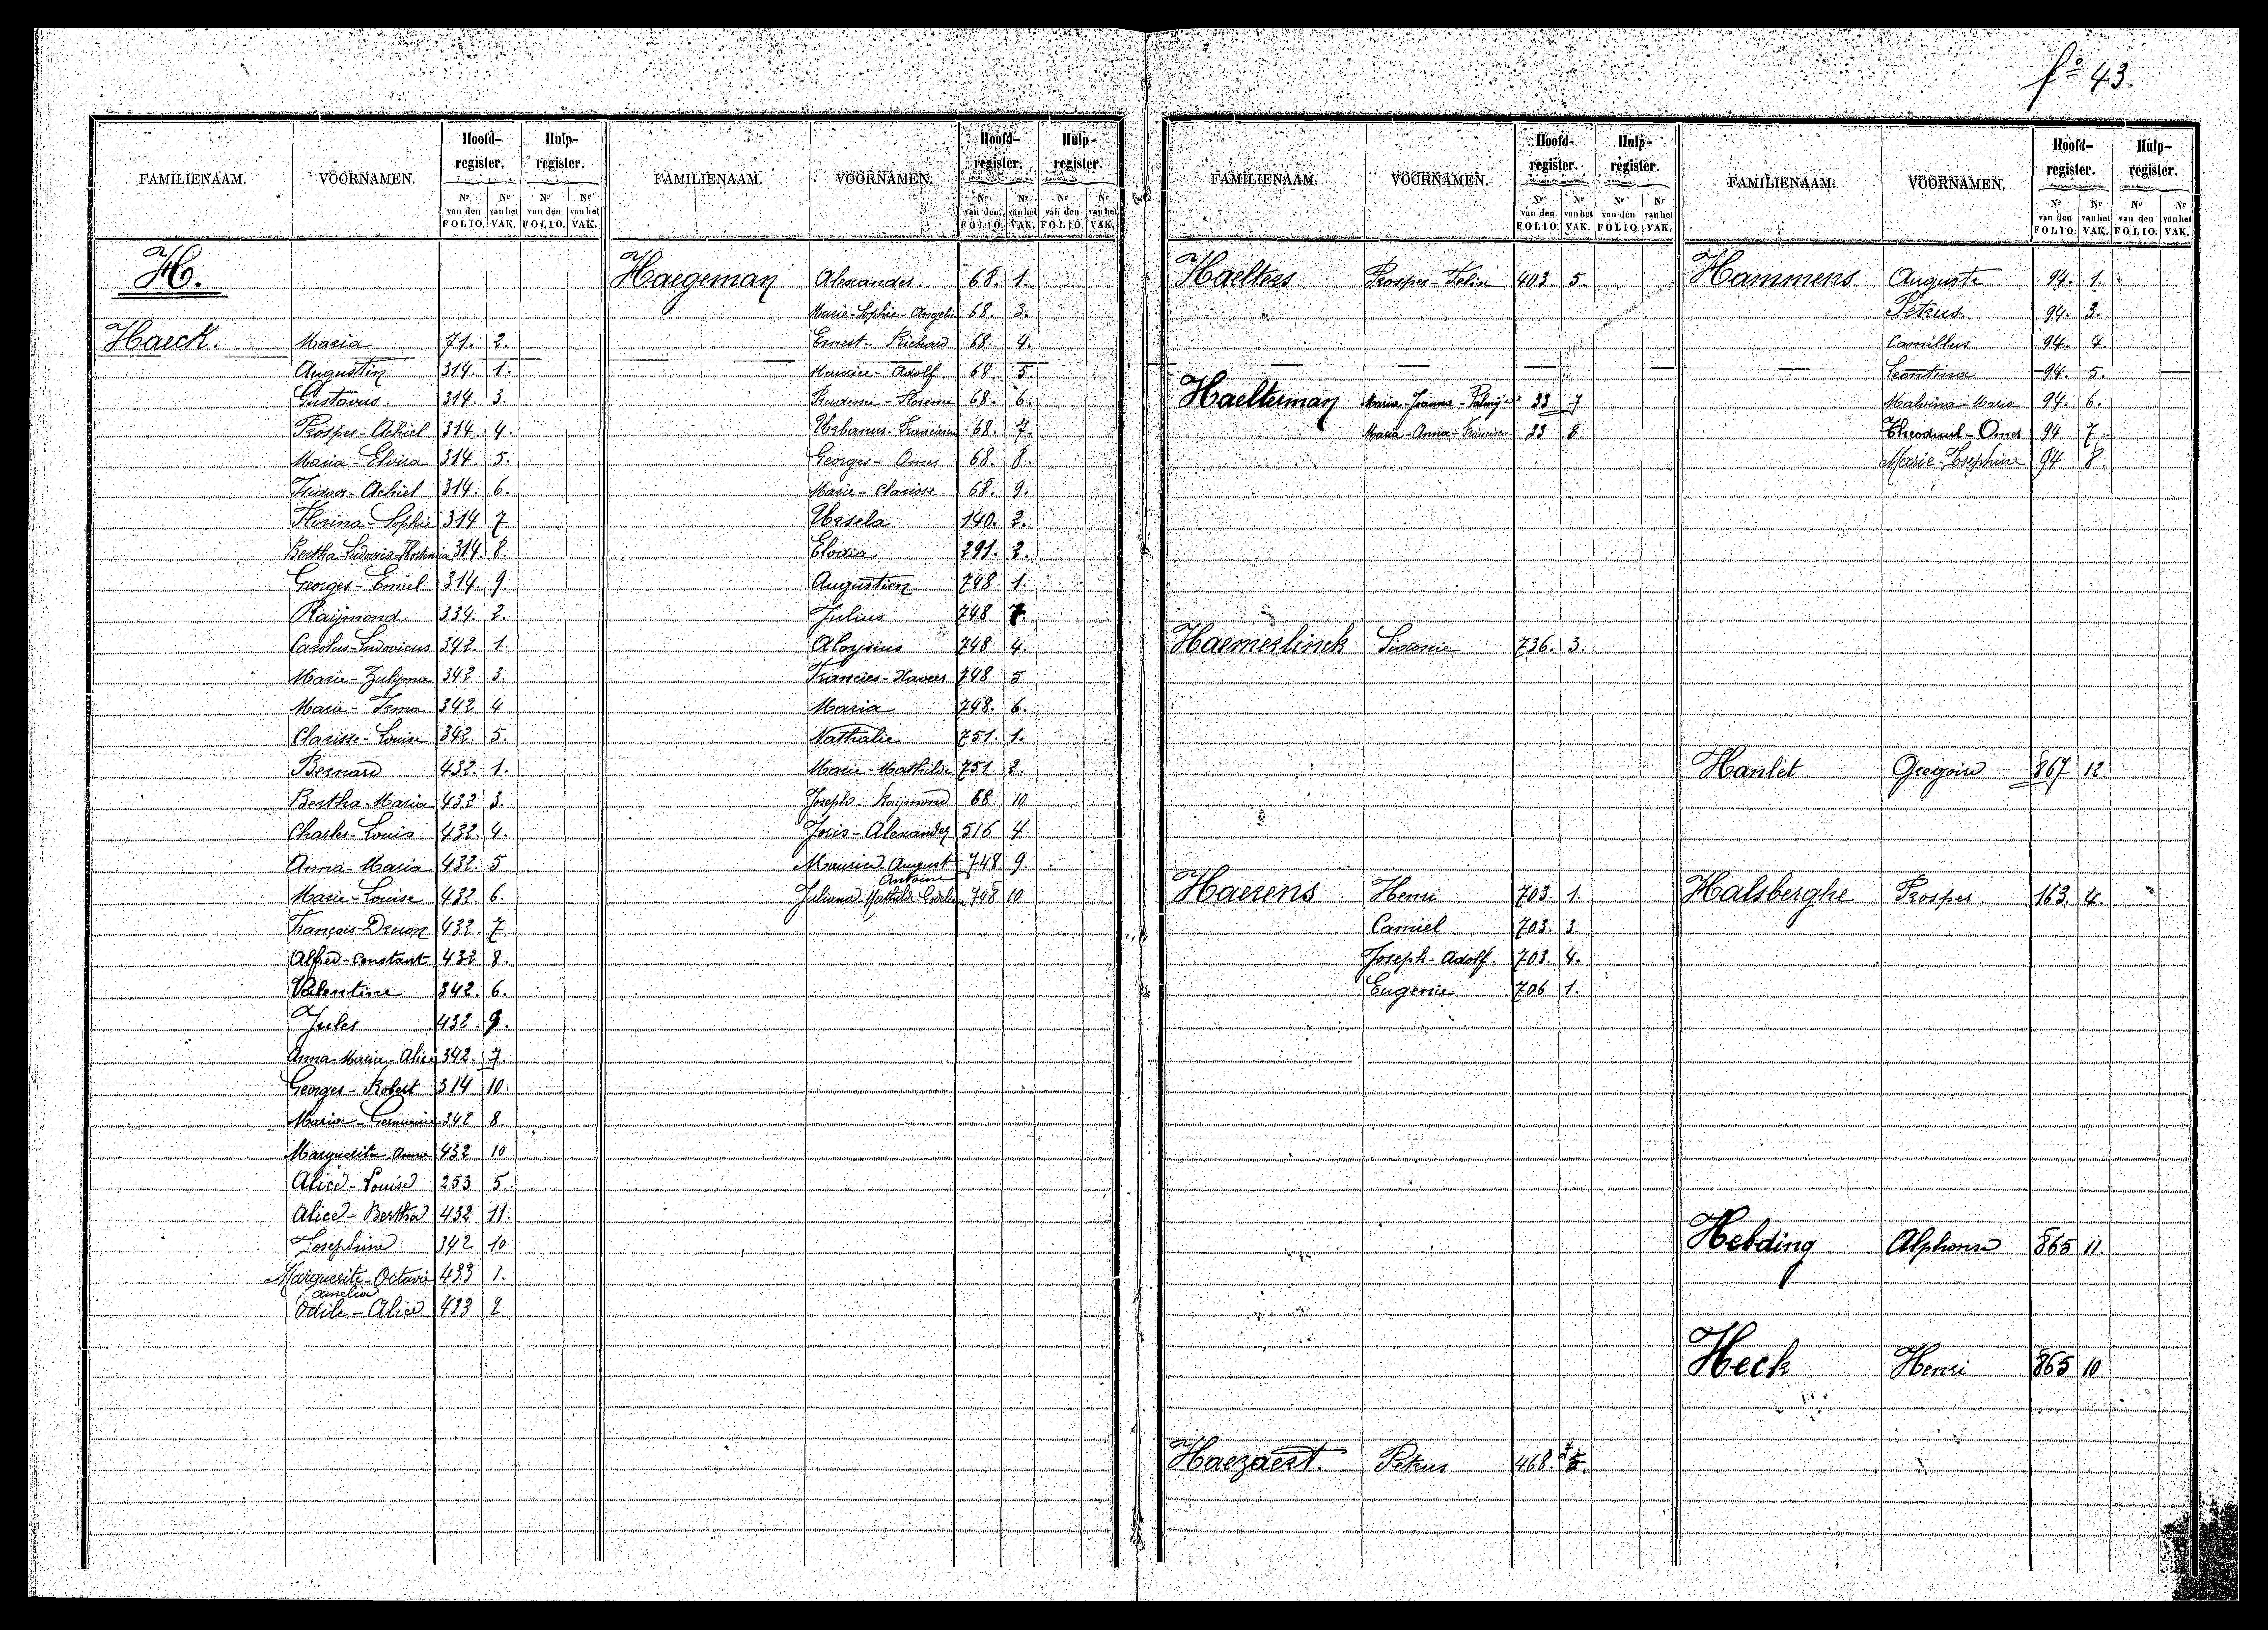 fº 43.
FAMILIENAAM. VOORNAMEN. Hoofd-register. Hulp-register.
Nr van den FOLIO. Nr van het VAK. Nr van den FOLIO. Nr van het VAK.
H.
Haeck. Maria 71. 2.
Augustin 314. 1.
Gustavus. 314. 3.
Prosper-Achiel 314. 4.
Maria-Elvira 314. 5.
Isidoor-Achiel 314. 6.
Florina-Sophie 314 7
Bertha-Ludovica 314. 8.
Georges-Emiel 314. 9.
Raijmond. 334. 2.
Carolus-Ludovicus 342. 1.
Marie-Zulijma 342 3.
Marie-Irma 342 4
Clarisse-Louise 342. 5.
Bernard 432. 1.
Bertha-Maria 432 3.
Charles-Louis 432. 4.
Anna-Maria 432. 5
Marie-Louise 432. 6.
François-Druon 432. 7.
Alfred-Constant 432 8.
Valentine 342. 6.
Jules 432. 9.
Anna-Maria-Alice 342. 7.
Georges-Robert 314 10.
Maria-Germaine 342 8.
Marguerita Anna 432 10
Alice-Louise 253 5.
Alice-Bertha 432 11.
Josephine 342 10
Marguerite-Octavie 433 1.
Amelie
Odile-Alice 433 2
FAMILIENAAM. VOORNAMEN. Hoofd-register. Hulp-register.
Nr van den FOLIO. Nr van het VAK. Nr van den FOLIO. Nr van het VAK.
Haegeman Alexander. 68. 1.
Marie-Sophie-Angelie 68. 3.
Ernest-Richard 68. 4.
Maurice-Adolf. 68. 5
Prudence-Florence 68. 6.
Urbanus-Franciscus 68. 7.
Georges-Omer 68. 8.
Marie-Clarisse 68. 9.
Ursela 140. 2.
Elodia 291. 2.
Augustien 748 1.
Julius 748 7.
Aloysius 748 4.
Francies-Xaveer 748 5
Maria 748. 6.
Nathalie 751. 1.
Marie-Mathilde 751. 2.
Joseph-Raijmond 68. 10
Joris-Alexander 516 4
Maurice August 748 9.
Antoine
Juliana Mathilde 748 10
FAMILIENAAM. VOORNAMEN. Hoofd-register. Hulp-register.
Nr van den FOLIO. Nr van het VAK. Nr van den FOLIO. Nr van het VAK.
Haelters Prosper-Felix 403. 5.
Haelterman Maria-Joanna-Palmijre 33 7
Maria-Anna-Francisca 33 8.
Haemerlinck Sidonie 736. 3.
Haerens Henri 703. 1.
Camiel 703. 3.
Joseph-Adolf. 703. 4.
Eugenie 706 1.
Haezaert. Petrus 468.
FAMILIENAAM. VOORNAMEN. Hoofd-register. Hulp-register.
Nr van den FOLIO. Nr van het VAK. Nr van den FOLIO. Nr van het VAK.
Hammens Auguste 94. 1.
Petrus. 94. 3.
Camillus 94. 4.
Leontina 94. 5.
Malvina-Maria 94. 6.
Theoduul-Omer 94 7
Marie-Josephine 94 8.
Hanlet Gregoire 867 12.
Halsberghe Prosper. 163. 4.
Hebding Alphonse 865 11.
Heck Henri 865 10